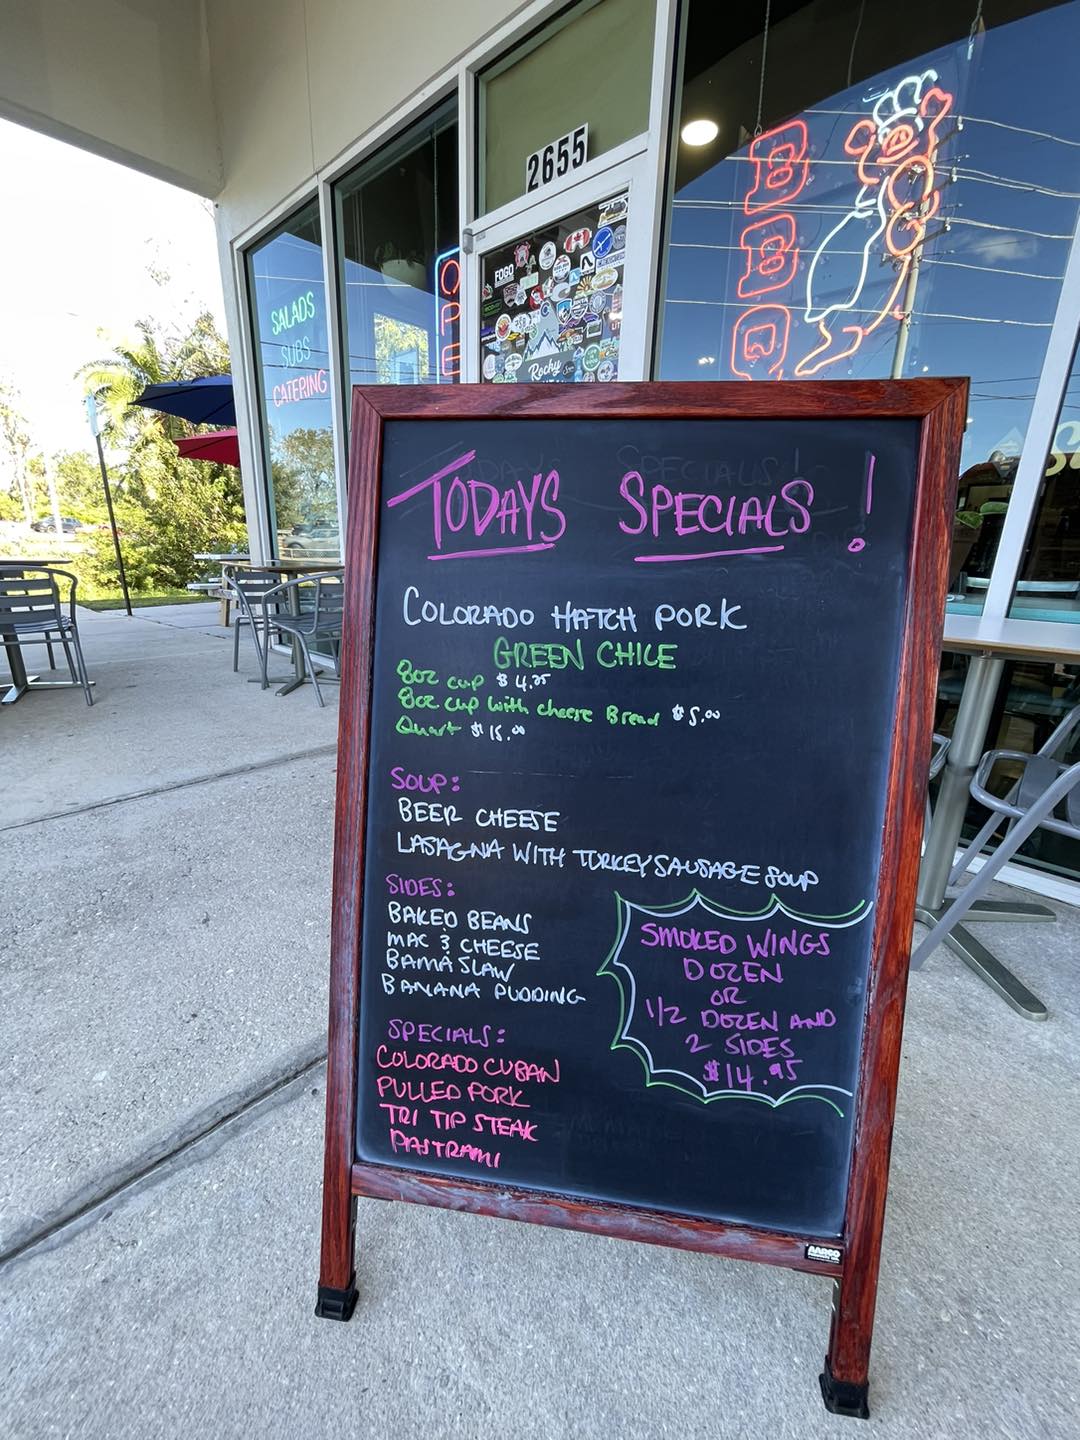 2655
BBQ
SALADS
SUBS
CATERING
FOGO
Rocky
TODAYS SPECIALS!
COLORADO HATCH PORK
GREEN CHILE
8oz cup $4.25
8oz cup with cheese Bread $5.00
Quart $15.00
SOUP:
BEER CHEESE
LASAGNA WITH TURKEY SAUSAGE SOUP
SIDES:
BAKED BEANS
MAC & CHEESE
BAMA SLAW
BANANA PUDDING
SMOKED WINGS
DOZEN
OR
1/2 DOZEN AND
2 SIDES
$14.95
SPECIALS:
COLORADO CUBAN
PULLED PORK
TRI TIP STEAK
PASTRAMI
AARCO